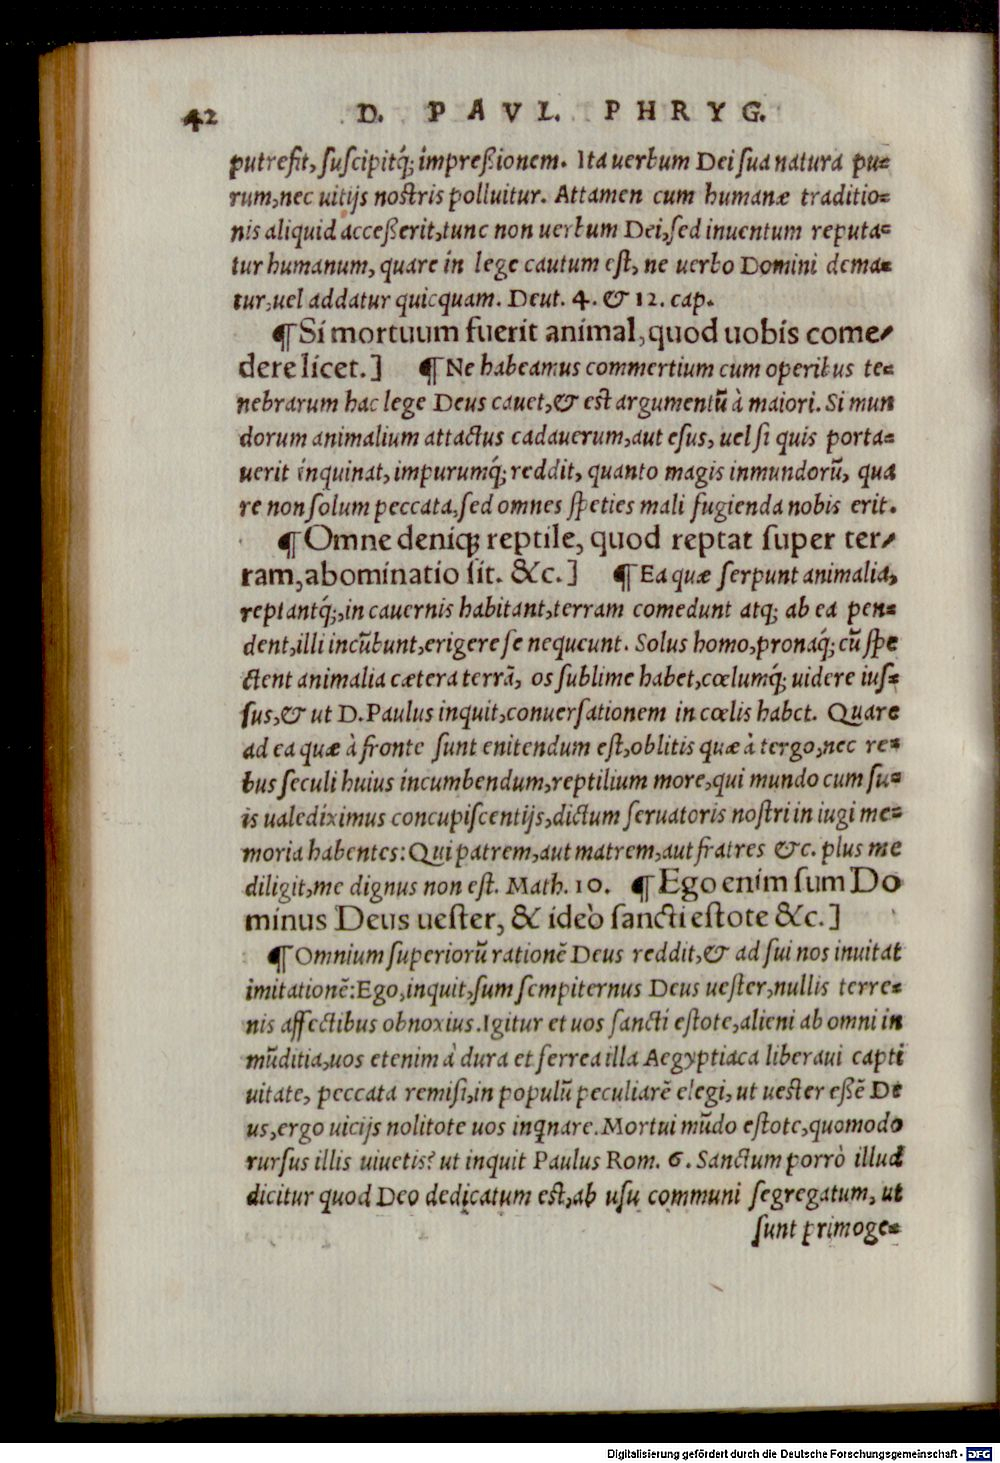 42 D. PAVL. PHRYG.
putrefit, suscipitq́; impreßionem. Ita uerbum Dei sua natura pu=
rum, nec uitijs nostris polluitur. Attamen cum humanæ traditio=
nis aliquid acceßerit, tunc non uerbum Dei, sed inuentum reputa=
tur humanum, quare in lege cautum est, ne uerbo Domini dema=
tur, uel addatur quicquam. Deut. 4. & 12. cap.
¶ Si mortuum fuerit animal, quod uobis come/
dere licet. ] ¶ Ne habeamus commertium cum operibus te=
nebrarum hac lege Deus cauet, & est argumentũ à maiori. Si mun
dorum animalium attactus cadauerum, aut esus, uel si quis porta=
uerit inquinat, impurumq́; reddit, quanto magis inmundorũ, qua
re non solum peccata, sed omnes speties mali fugienda nobis erit.
¶ Omne deniq; reptile, quod reptat super ter/
ram, abominatio sit. &c. ] ¶ Ea quæ serpunt animalia,
reptantq́;, in cauernis habitant, terram comedunt atq; ab ea pen=
dent, illi incũbunt, erigere se nequeunt. Solus homo, pronaq́; cũ spe
ctent animalia cætera terrã, os sublime habet, cœlumq́; uidere ius=
sus, & ut D. Paulus inquit, conuersationem in cœlis habet. Quare
ad ea quæ à fronte sunt enitendum est, oblitis quæ à tergo, nec re=
bus seculi huius incumbendum, reptilium more, qui mundo cum su=
is ualediximus concupiscentijs, dictum seruatoris nostri in iugi me=
moria habentes: Qui patrem, aut matrem, aut fratres &c. plus me
diligit, me dignus non est. Math. 10. ¶ Ego enim sum Do
minus Deus uester, & ideò sancti estote &c. ]
¶ Omnium superiorũ rationẽ Deus reddit, & ad sui nos inuitat
imitationẽ: Ego, inquit, sum sempiternus Deus uester, nullis terre=
nis affectibus obnoxius. Igitur et uos sancti estote, alieni ab omni in
mũditia, uos etenim à dura et ferrea illa Aegyptiaca liberaui capti
uitate, peccata remisi, in populũ peculiarẽ elegi, ut uester eßẽ De
us, ergo uicijs nolitote uos inqnare. Mortui mũdo estote, quomodo
rursus illis uiuetis? ut inquit Paulus Rom. 6. Sanctum porrò illud
dicitur quod Deo dedicatum est, ab usu communi segregatum, ut
sunt primoge=
Digitalisierung gefördert durch die Deutsche Forschungsgemeinschaft - DFG